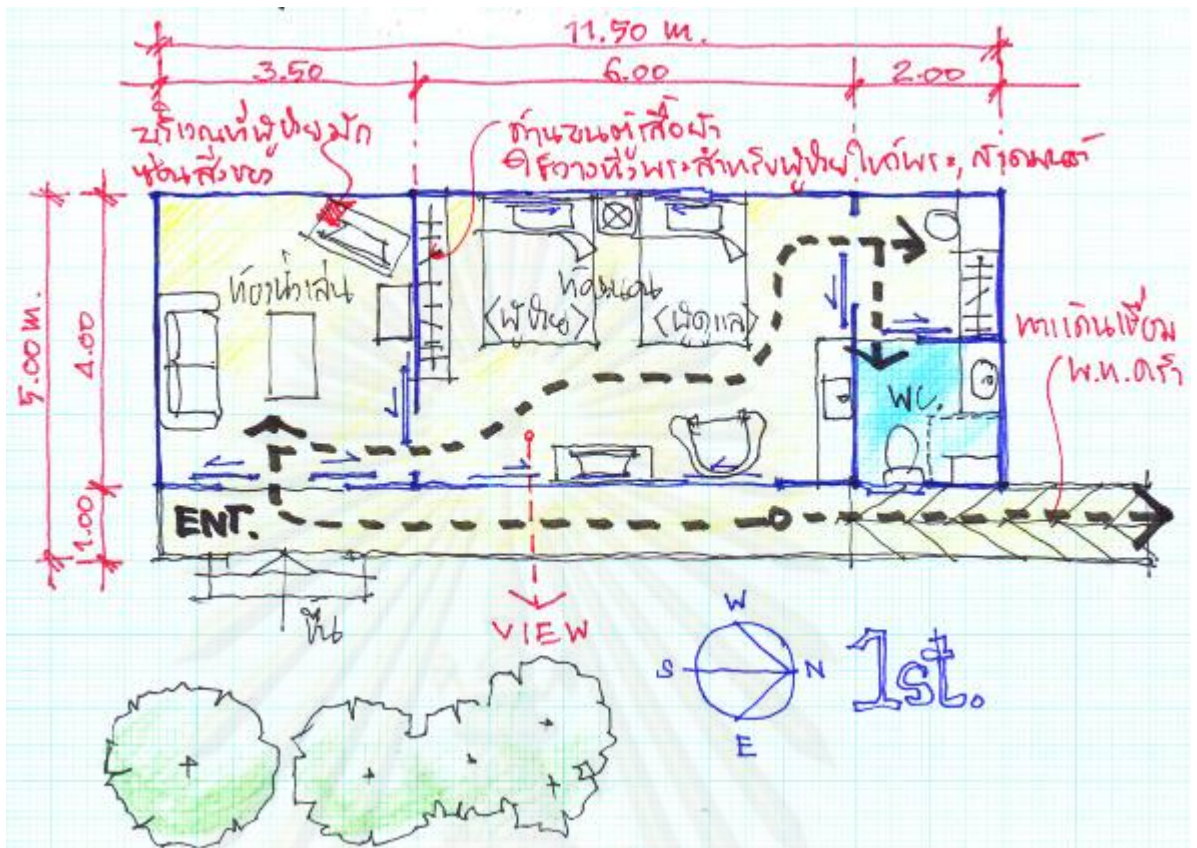 11.50 m.
3.50
6.00
2.00
บริเวณที่ผู้ป่วยมัก
ซ่อนสิ่งของ
ด้านบนตู้เสื้อผ้า
ใช้วางหิ้งพระสำหรับผู้ป่วยไหว้พระ, สวดมนต์
5.00 m.
4.00
1.00
ห้องนั่งเล่น
ห้องนอน
<ผู้ป่วย>
<ผู้ดูแล>
ทางเดินเชื่อม
พ.ท.ครัว
WC.
ENT.
ขึ้น
VIEW
W
S
N
E
1st.